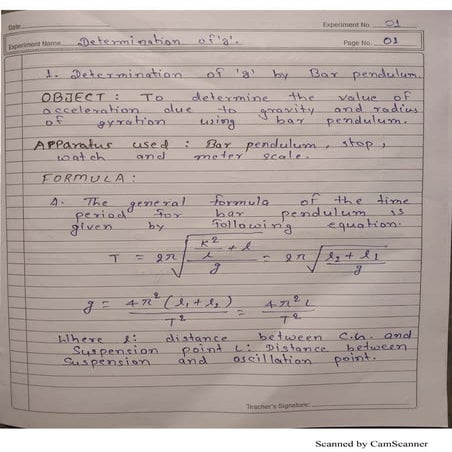 Date
Experiment No. 01
Experiment Name Determination of 'g'.
Page No. 01
1. Determination of 'g' by Bar pendulum.
OBJECT : To determine the value of
acceleration due to gravity and radius
of gyration using bar pendulum.
APParatus used : Bar pendulum, stop,
watch and meter scale.
FORMULA :
A. The general formula of the time
period for bar pendulum is
given by following equation.
T = 2π√((k²/l + l)/g) = 2π√((l₂ + l₁)/g)
g = 4π²(l₁+l₂)/T² = 4π²L/T²
Where l: distance between C.G. and
Suspension point L: Distance between
Suspension and oscillation point.
Teacher's Signature:
Scanned by CamScanner